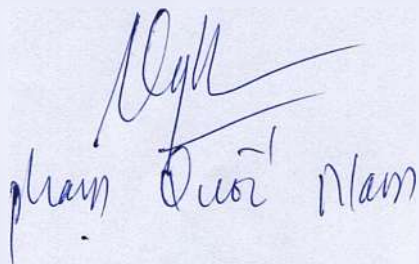 phạm Quốc Nam